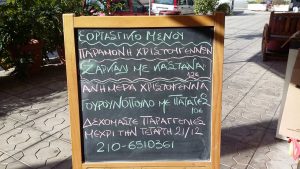 ΕΟΡΤΑΣΤΙΚΟ ΜΕΝΟΥ
ΠΑΡΑΜΟΝΗ ΧΡΙΣΤΟΥΓΕΝΝΩΝ
ΖΑΡΚΑΔΙ ΜΕ ΚΑΣΤΑΝΑ
12€
ΑΝΗΜΕΡΑ ΧΡΙΣΤΟΥΓΕΝΝΑ
ΓΟΥΡΟΥΝΟΠΟΥΛΟ ΜΕ ΠΑΤΑΤΕΣ
10€
ΔΕΧΟΜΑΣΤΕ ΠΑΡΑΓΓΕΛΙΕΣ
ΜΕΧΡΙ ΤΗΝ ΤΕΤΑΡΤΗ 21/12
210-6510361